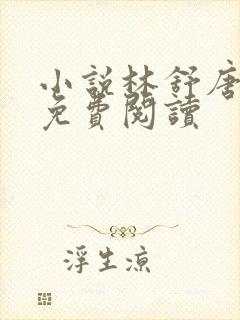 小說林舒唐
免費閱讀
浮生涼